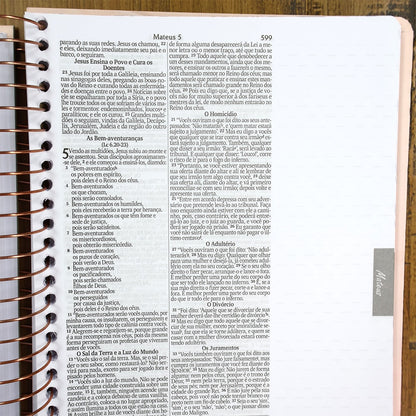 Mateus 5
599
parando as suas redes. Jesus os chamou, 22
e eles, deixando imediatamente seu pai e o
barco, o seguiram.
Jesus Ensina o Povo e Cura os
Doentes
23 Jesus foi por toda a Galileia, ensinando
nas sinagogas deles, pregando as boas-no
vas do Reino e curando todas as enfermida-
des e doenças entre o povo. 24 Notícias sobre
ele se espalharam por toda a Síria, e o povo
lhe trouxe todos os que sofriam de vários ma-
les e tormentos: endemoninhados, loucos e
paralíticos; e ele os curou. 25 Grandes multi-
dões o seguiam, vindas da Galileia, Decápo-
lis, Jerusalém, Judeia e da região do outro
lado do Jordão.
As Bem-aventuranças
(Lc 6.20-23)
5 Vendo as multidões, Jesus subiu ao monte
e se assentou. Seus discípulos aproximaram-
se dele, 2 e ele começou a ensiná-los, dizendo:
3 "Bem-aventurados
os pobres em espírito,
pois deles é o Reino dos céus.
4 Bem-aventurados
os que choram,
pois serão consolados.
5 Bem-aventurados os humildes,
pois eles receberão a terra por herança.
6 Bem-aventurados os que têm fome e
sede de justiça,
pois serão satisfeitos.
7 Bem-aventurados
os misericordiosos,
pois obterão misericórdia.
8 Bem-aventurados
os puros de coração,
pois verão a Deus.
9 Bem-aventurados
os pacificadores,
pois serão chamados
filhos de Deus.
10 Bem-aventurados
os perseguidos
por causa da justiça,
pois deles é o Reino dos céus.
11 "Bem-aventurados serão vocês quando, por
minha causa, os insultarem, os perseguirem e
levantarem todo tipo de calúnia contra vocês.
12 Alegrem-se e regozijem-se, porque grande
é a sua recompensa nos céus, pois da mesma
forma perseguiram os profetas que viveram
antes de vocês.
O Sal da Terra e a Luz do Mundo
13 "Vocês são o sal da terra. Mas, se o sal per-
der o seu sabor, como restaurá-lo? Não ser-
virá para nada, exceto para ser jogado fora e
pisado pelos homens.
14 "Vocês são a luz do mundo. Não se pode
esconder uma cidade construída sobre um
monte. 15 E, também, ninguém acende uma
candeia e a coloca debaixo de uma vasilha.
de forma alguma desaparecerá da Lei a me-
nor letra ou o menor traço, até que tudo se
cumpra. 19 Todo aquele que desobedecer a
um desses mandamentos, ainda que dos me-
nores, e ensinar os outros a fazerem o mesmo,
será chamado menor no Reino dos céus; mas
todo aquele que praticar e ensinar estes man-
damentos será chamado grande no Reino dos
céus. 20 Pois eu digo que, se a justiça de vo-
cês não for muito superior à dos fariseus e
mestres da lei, de modo nenhum entrarão no
Reino dos céus.
O Homicídio
21 "Vocês ouviram o que foi dito aos seus ante-
passados: 'Não matarás', e 'quem matar estará
sujeito a julgamento'. 22 Mas eu digo a vocês
que qualquer que se irar contra seu irmão es-
tará sujeito a julgamento. Também, qualquer
que disser a seu irmão: 'Racá', será levado ao
tribunal. E qualquer que disser: 'Louco!', corre
o risco de ir para o fogo do inferno.
23 "Portanto, se você estiver apresentando
sua oferta diante do altar e ali se lembrar de
que seu irmão tem algo contra você, 24 deixe
sua oferta ali, diante do altar, e vá primeiro
reconciliar-se com seu irmão; depois volte e
apresente sua oferta.
25 "Entre em acordo depressa com seu adver-
sário que pretende levá-lo ao tribunal. Faça
isso enquanto ainda estiver com ele a cami-
nho, pois, caso contrário, ele poderá entre-
gá-lo ao juiz, e o juiz ao guarda, e você po-
derá ser jogado na prisão. 26 Eu garanto que
você não sairá de lá enquanto não pagar o úl-
timo centavo.
O Adultério
27 "Vocês ouviram o que foi dito: 'Não adul-
terarás'. 28 Mas eu digo: Qualquer que olhar
para uma mulher e desejá-la, já cometeu adul-
tério com ela no seu coração. 29 Se o seu olho
direito o fizer pecar, arranque-o e lance-o fora.
É melhor perder uma parte do seu corpo do
que ser todo ele lançado no inferno. 30 E, se a
sua mão direita o fizer pecar, corte-a e lance-a
fora. É melhor perder uma parte do seu corpo
do que ir todo ele para o inferno.
O Divórcio
31 "Foi dito: 'Aquele que se divorciar de sua
mulher deverá dar-lhe certidão de divórcio'.
32 Mas eu digo que todo aquele que se divor-
ciar de sua mulher, exceto por imoralidade se-
xual, faz que ela se torne adúltera, e quem se
casar com a mulher divorciada estará come-
tendo adultério.
Os Juramentos
33 "Vocês também ouviram o que foi dito aos
seus antepassados: 'Não jure falsamente, mas
cumpra os juramentos que você fez diante do
Senhor'. 34 Mas eu digo: Não jurem de forma
alguma: nem pelos céus, porque é o trono de
Deus; 35 nem pela terra, porque é o estrado
de seus pés; nem por Jerusalém, porque é a
cidade do grande Rei. 36 E não jure pela sua
cabeça, pois você não pode tornar branco ou
preto nem um fio de cabelo. 37 Seja o seu 'sim',
'sim', e o seu 'não', 'não'; o que passar disso
vem do Maligno.
Mateus